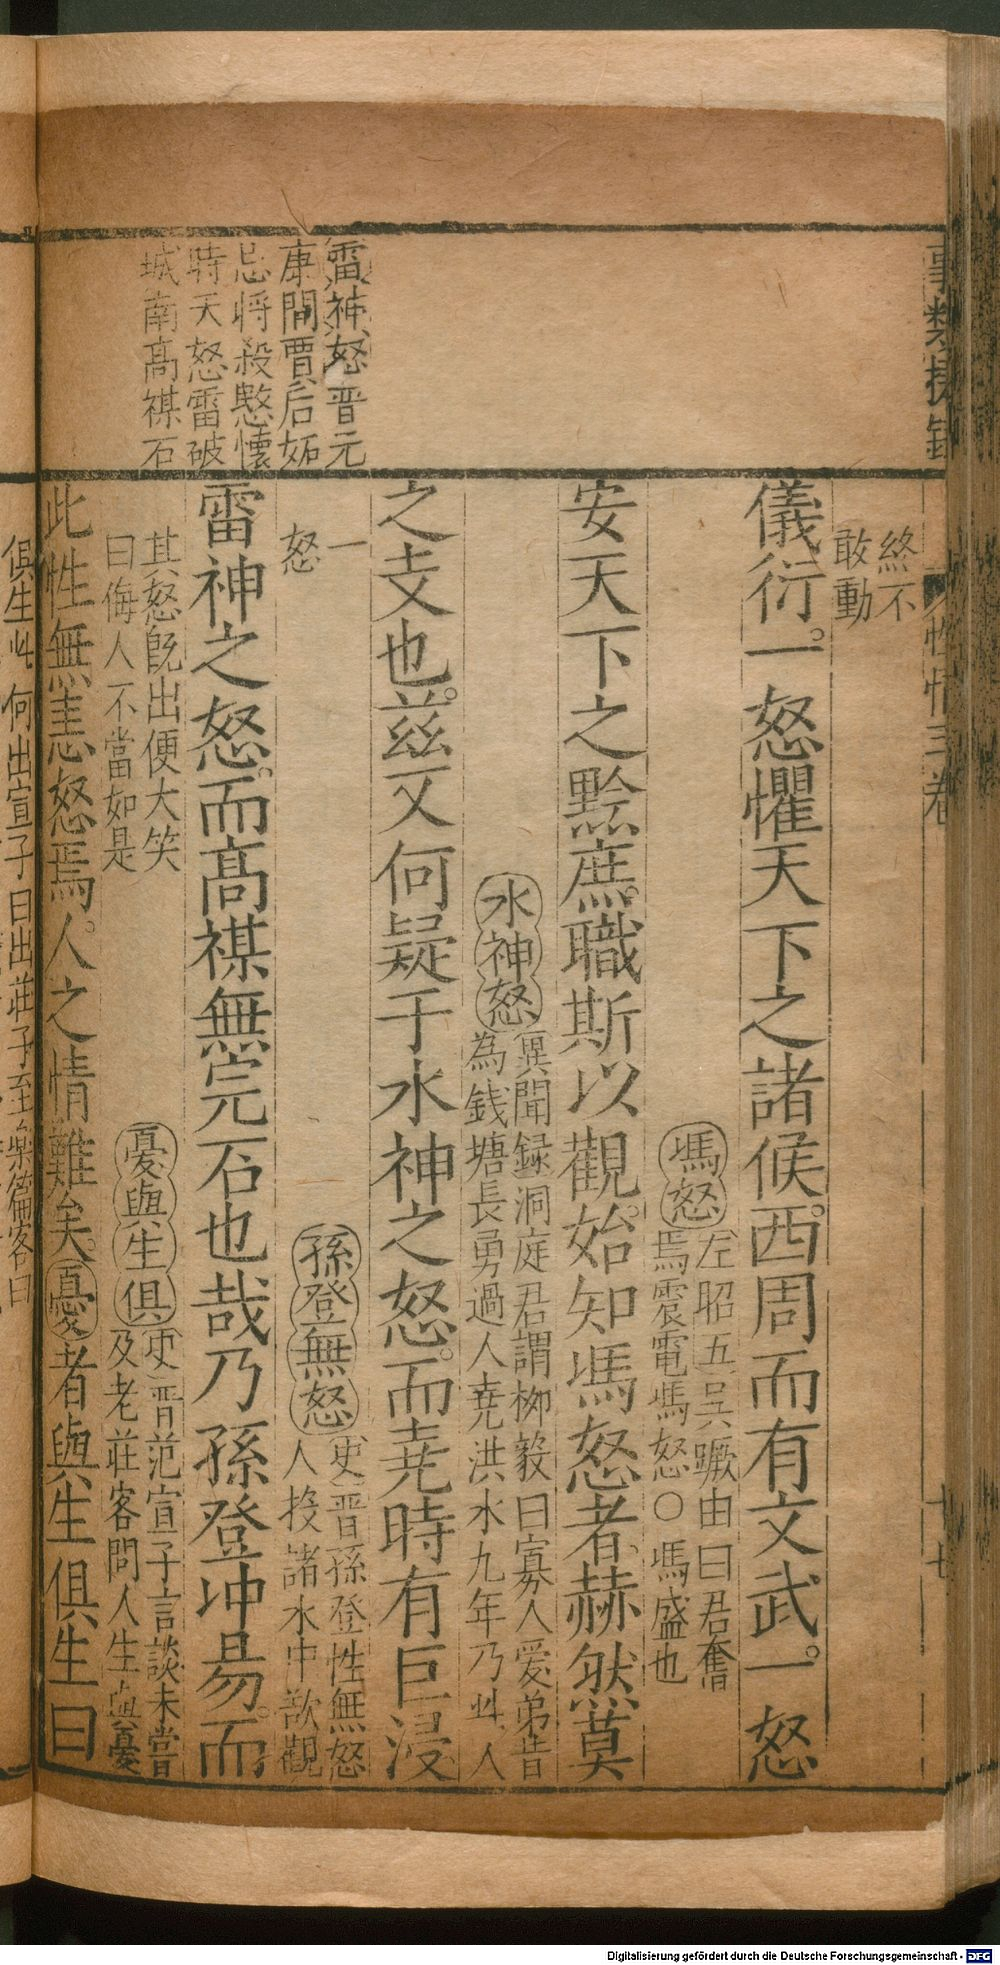 終不
敢動
儀衍。一怒懼天下之諸侯。西周而有文武。一怒
馮怒左昭五吳蹶由曰君奮
焉震電馮怒〇馮盛也
安天下之黔庶。職斯以觀。始知馮怒者赫然莫
水神怒異聞録洞庭君謂柳毅曰寡人愛弟昔
為錢塘長勇過人堯洪水九年乃此人
之支也。兹又何疑于水神之怒。而堯時有巨浸
一
怒
孫登無怒史晋孫登性無怒
人投諸水中欲觀
雷神怒晋元
康間賈后妬
忌將殺愍懷
時天怒雷破
城南高禖石
雷神之怒。而高禖無完石也哉乃孫登坤易。而
其怒旣出便大笑
曰侮人不當如是
憂與生俱史晋范宣子言談未嘗
及老莊客問人生與憂
此性無恚怒焉。人之情難矣。憂者與生俱生曰
俱生此何出宣子曰出莊子至樂篇客曰
性情三卷
十七
Digitalisierung gefördert durch die Deutsche Forschungsgemeinschaft - DFG